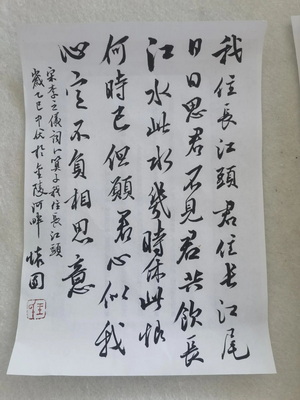 我住長江頭君住長江尾
日日思君不見君共飲長
江水此水幾時休此恨
何時已但願君心似我
心定不負相思意
宋李之儀詞卜算子我住長江頭
歲乙巳中伏於金陵河畔